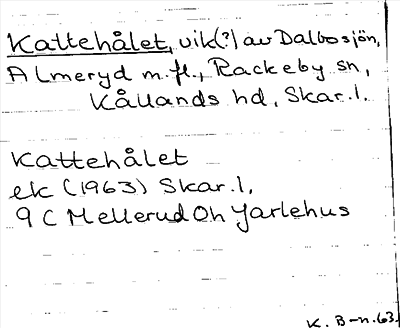 Kattehålet, vik(?) av Dalbosjön,
Almeryd m.fl., Rackeby sn,
Kållands hd, Skar.l.
Kattehålet
ek (1963) Skar.l,
9 C Mellerud Öh Jarlehus
K. B-n. 63.